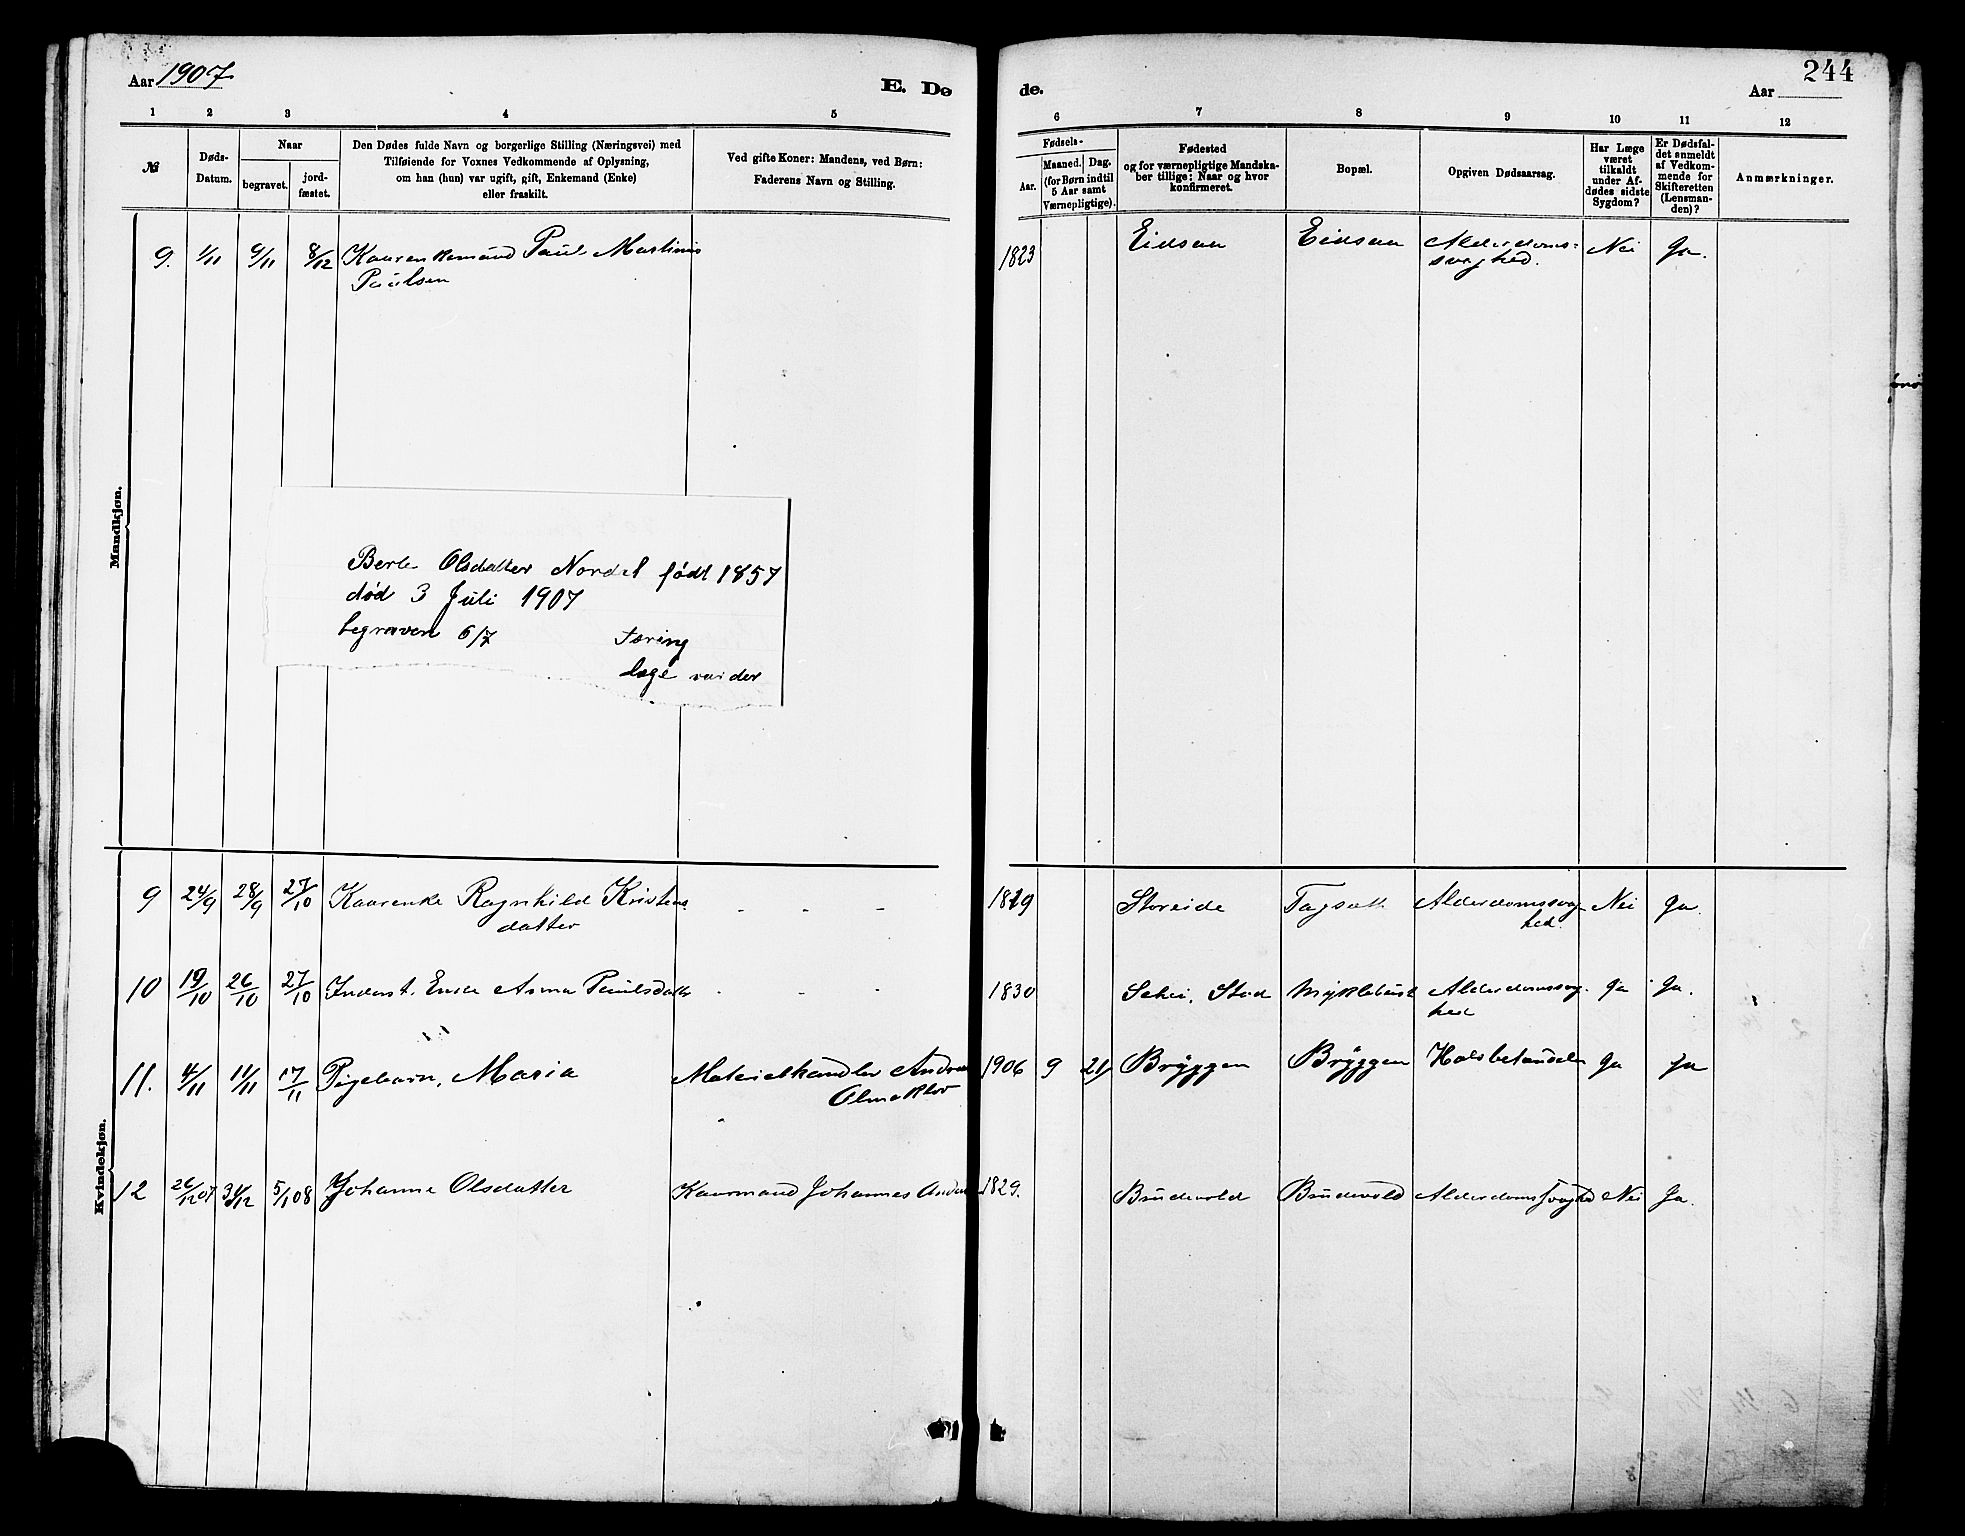 Aar 1907
E. Dø
1 2 3 4 5
№
Døds-
Datum.
Naar
begravet.
jord-
fæstet.
Den Dødes fulde Navn og borgerlige Stilling (Næringsvei) med
Tilføiende for Voxnes Vedkommende af Oplysning,
om han (hun) var ugift, gift, Enkemand (Enke)
eller fraskilt.
Ved gifte Koner: Mandens, ved Børn:
Faderens Navn og Stilling.
Mandkjøn.
9. 1/11 9/11 8/12 Kaarenkemand Paul Martinus
Paulsen
Berte Olsdatter Nordal født 1857
død 3 Juli 1907
begraven 6/7 Tæring
læge var der
Kvindekjøn.
9 24/9 28/9 27/10 Kaarenke Ragnhild Kristens
datter - - -
10 19/10 26/10 27/10 Inderst. Enke Anna Paulsdatter - - -
11. 4/11 11/11 17/11 Pigebarn, Maria Materialhandler Andreas
Almaklov
12 26/12 07 31/12 5/1 08 Johanne Olsdatter Kaarmand Johannes
de.
244
Aar
6 7 8 9 10 11 12
Fødsels-
Aar.
Maaned. Dag.
(for Børn indtil
5 Aar samt
Værnepligtige).
Fødested
og for værnepligtige Mandska-
ber tillige: Naar og hvor
konfirmeret.
Bopæl.
Opgiven Dødsaarsag.
Har Læge
været
tilkaldt
under Af-
dødes sidste
Sygdom?
Er Dødsfal-
det anmeldt
af Vedkom-
mende for
Skifteretten
(Lensman-
den)?
Anmærkninger.
1823 Eidsaa Eidsaa Alderdoms-
svaghed. Nei Ja.
1829 Storeide Tagsæt Alderdomssvag-
hed. Nei Ja.
1830 Stad Myklebust Alderdomssvag-
hed Ja Ja.
1906 9 21 Bryggen Bryggen Halsbetændelse Ja Ja
1829. Brudevold Brudevold Alderdomssvaghed Nei Ja.